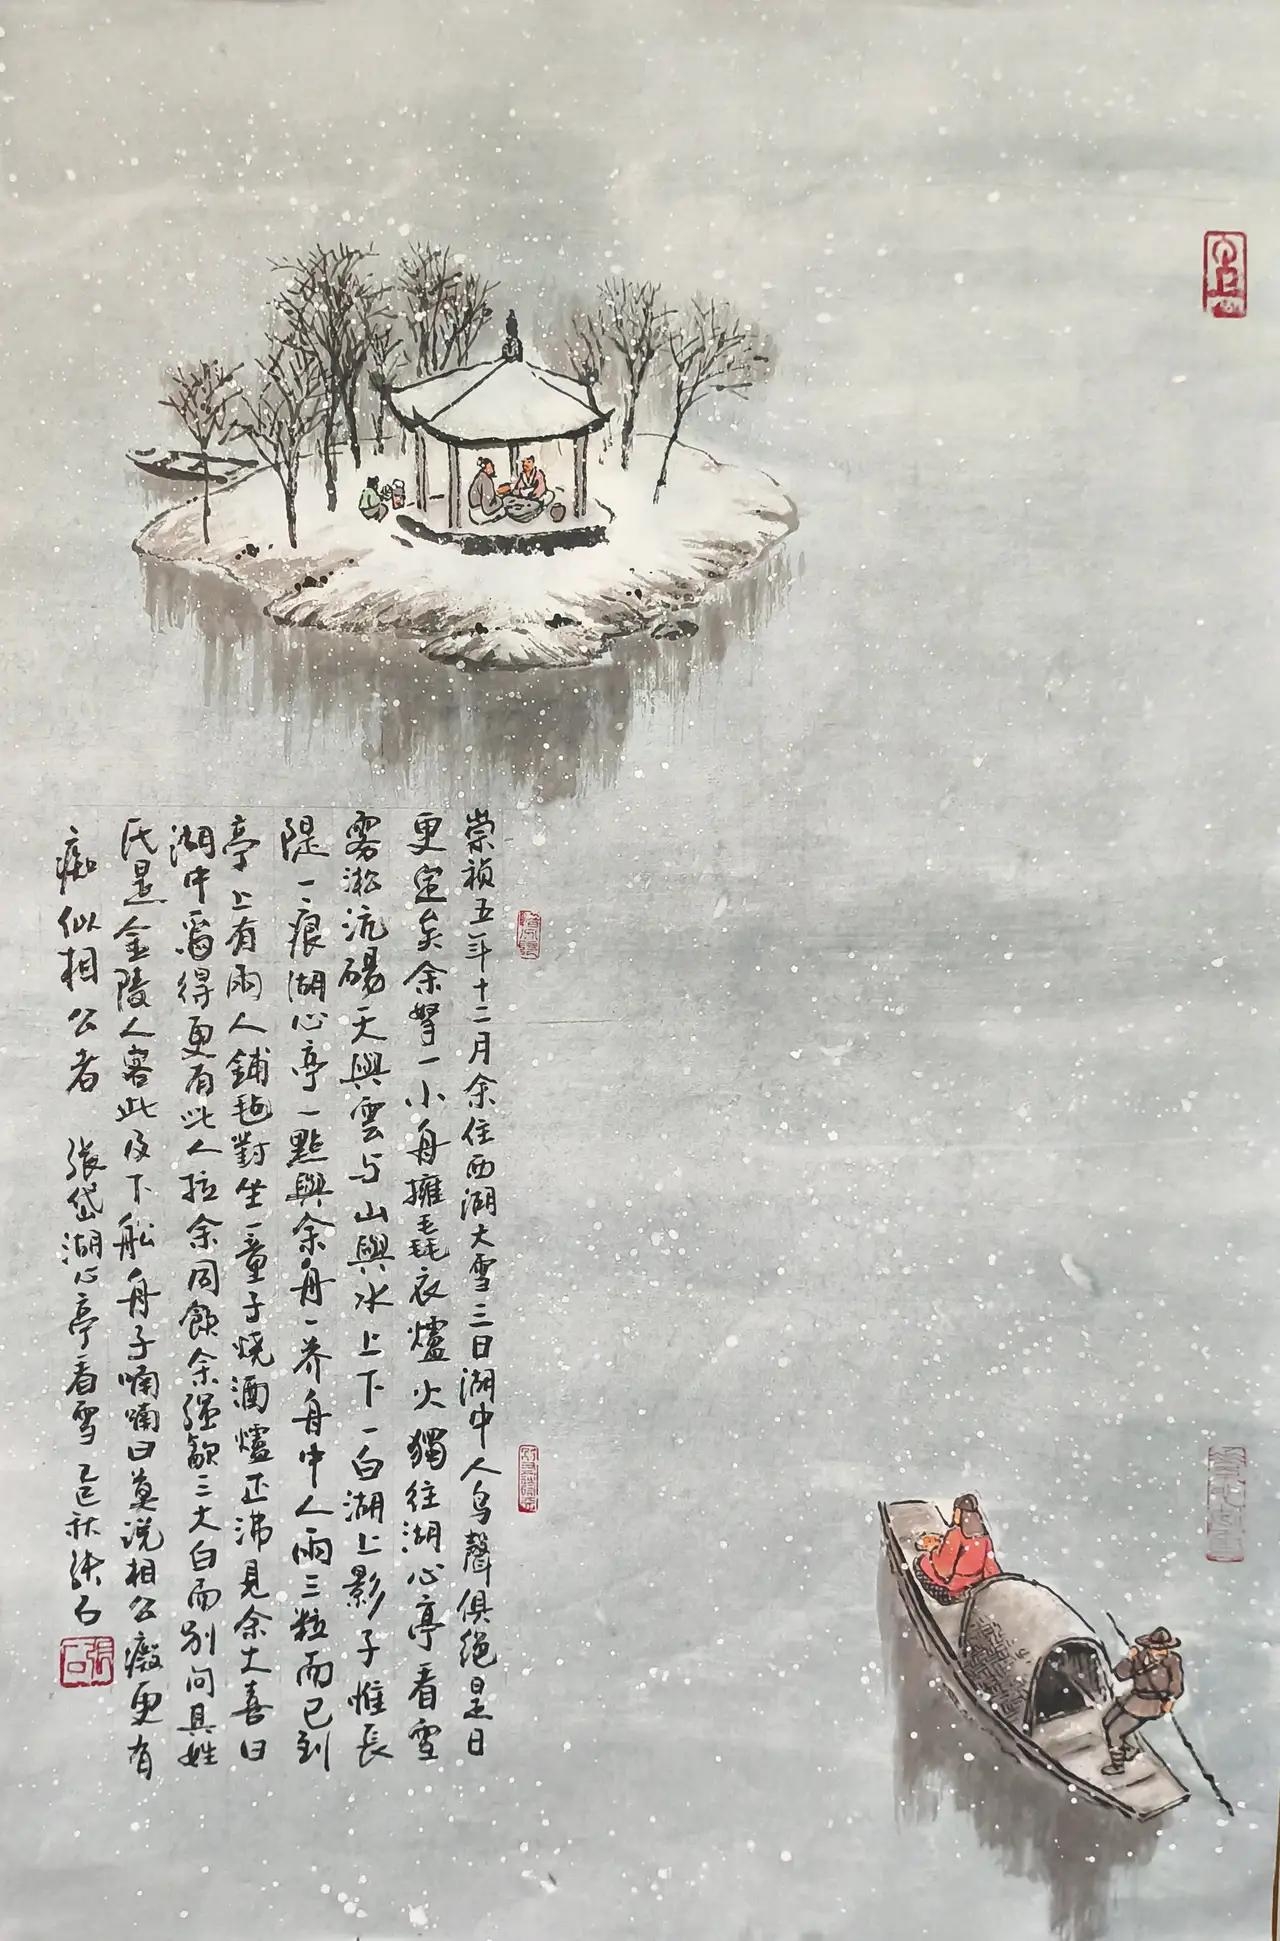 崇禎五年十二月余住西湖大雪三日湖中人鸟聲俱絕是日
更定矣余拏一小舟擁毳衣爐火獨往湖心亭看雪
雾淞沆碭天與雲与山與水上下一白湖上影子惟長
隄一痕湖心亭一點與余舟一芥舟中人兩三粒而已到
亭上有兩人鋪毡對坐一童子燒酒爐正沸見余大喜曰
湖中焉得更有此人拉余同飲余强飲三大白而別问其姓
氏是金陵人客此及下船舟子喃喃曰莫说相公癡更有
痴似相公者 張岱湖心亭看雪 乙巳秋張石
張石